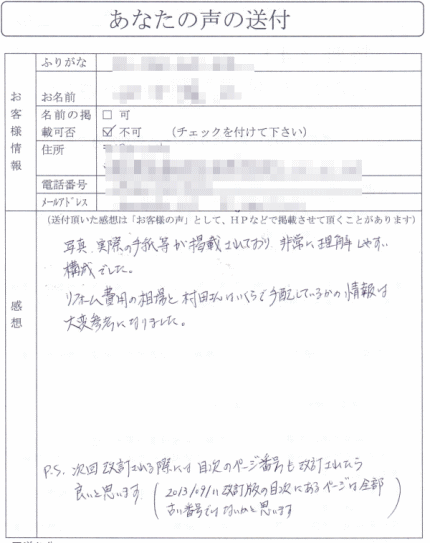 あなたの声の送付
ふりがな
お名前
お客様情報
名前の掲載可否
□ 可
☑ 不可 (チェックを付けて下さい)
住所
電話番号
メールアドレス
(送付頂いた感想は「お客様の声」として、HPなどで掲載させて頂くことがあります)
感想
写真、実際の手紙等が掲載されており、非常に理解しやすい
構成でした。
リフォーム費用の相場と村田さんはいくらで手配しているかの情報は
大変参考になりました。
P.S. 次回改訂される際には目次のページ番号も改訂されたら
良いと思います
(2013/09/11改訂版の目次にあるページは全部
古い番号ではないかと思います)